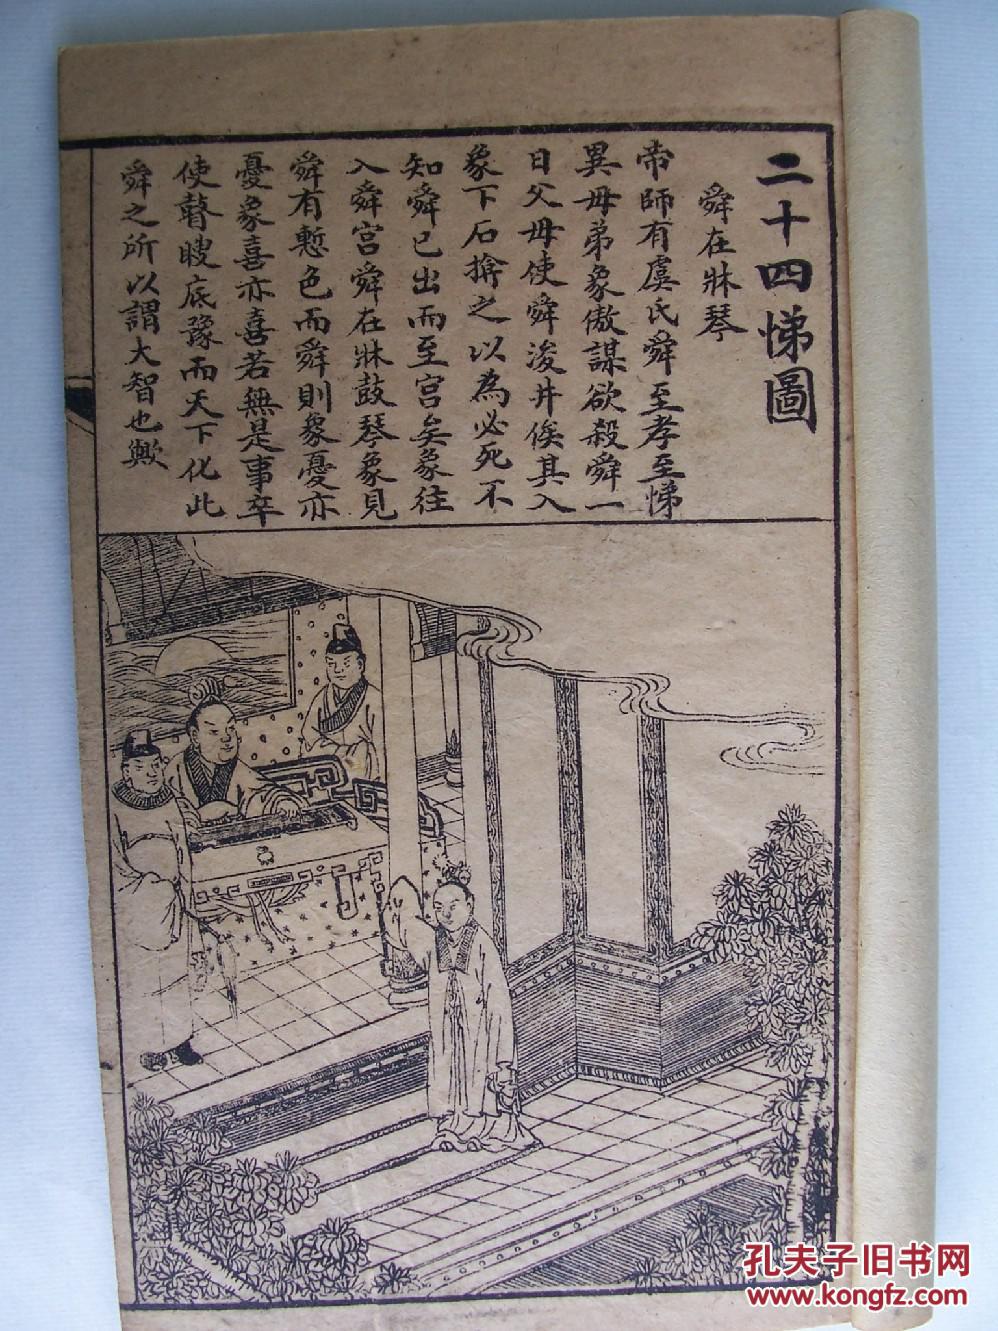 二十四悌圖
舜在牀琴
帝師有虞氏舜至孝至悌
異母弟象傲謀欲殺舜一
日父母使舜浚井俟其入
象下石揜之以為必死不
知舜已出而至宮矣象往
入舜宮舜在牀鼓琴象見
舜有慙色而舜則象憂亦
憂象喜亦喜若無是事卒
使瞽瞍底豫而天下化此
舜之所以謂大智也歟
孔夫子旧书网
www.kongfz.com